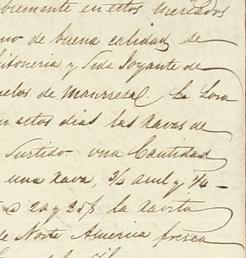 biemente en estos mercados
no de buena calidad de
fitoneria y Seda Joyante de
uelos de Manresa. La Lona
n estos dias las Xavas de
Surtido una Cantidad
una xava, 3/4 azul y 1/4
@ 24 y 25 p la Xavita
de Norte America fresca